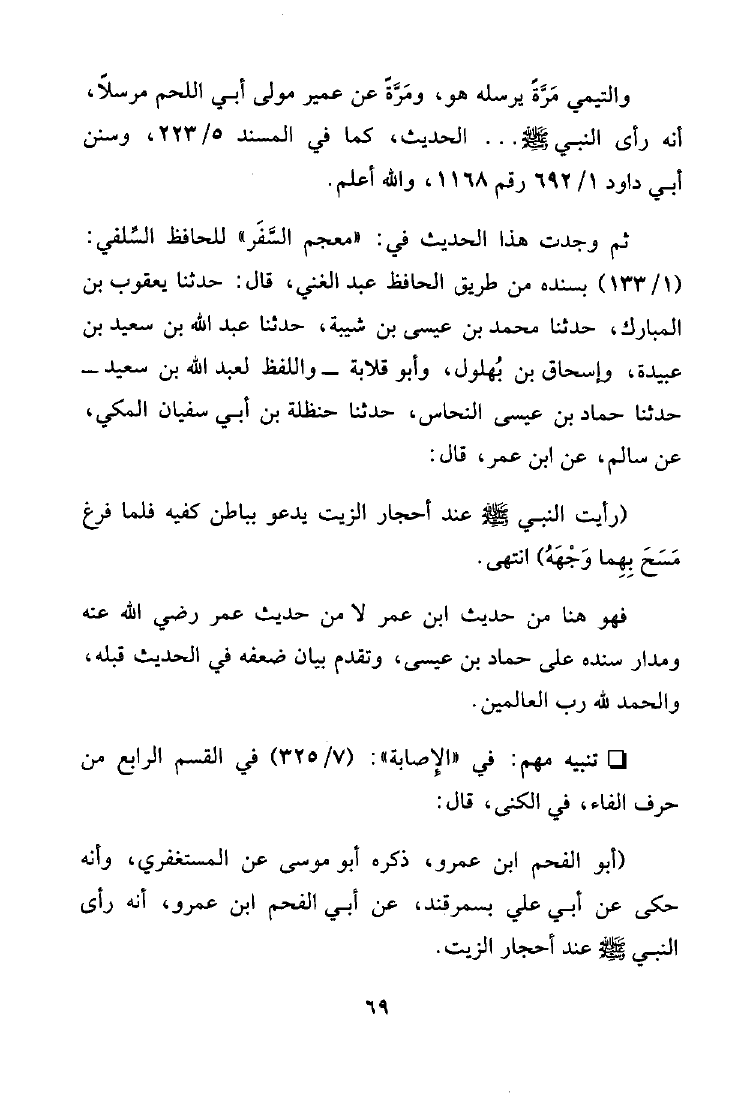 والتيمي مَرَّةً يرسله هو، ومَرَّةً عن عمير مولى أبي اللحم مرسلاً،
أنه رأى النبي ﷺ... الحديث، كما في المسند ٢٢٣/٥، وسنن
أبي داود ١/ ٦٩٢ رقم ١١٦٨، والله أعلم.
ثم وجدت هذا الحديث في: «معجم السَّفَر» للحافظ السِّلفي:
(١/ ١٣٣) بسنده من طريق الحافظ عبد الغني، قال: حدثنا يعقوب بن
المبارك، حدثنا محمد بن عيسى بن شيبة، حدثنا عبد الله بن سعيد بن
عبيدة، وإسحاق بن بُهلول، وأبو قلابة ـ واللفظ لعبد الله بن سعيد ـ
حدثنا حماد بن عيسى النحاس، حدثنا حنظلة بن أبي سفيان المكي،
عن سالم، عن ابن عمر، قال:
(رأيت النبي ﷺ عند أحجار الزيت يدعو بباطن كفيه فلما فرغ
مَسَحَ بِهِما وَجْهَهُ) انتهى.
فهو هنا من حديث ابن عمر لا من حديث عمر رضي الله عنه
ومدار سنده على حماد بن عيسى، وتقدم بيان ضعفه في الحديث قبله،
والحمد لله رب العالمين.
❑ تنبيه مهم: في «الإصابة»: (٣٢٥/٧) في القسم الرابع من
حرف الفاء، في الكنى، قال:
(أبو الفحم ابن عمرو، ذكره أبو موسى عن المستغفري، وأنه
حكى عن أبي علي بسمرقند، عن أبي الفحم ابن عمرو، أنه رأى
النبي ﷺ عند أحجار الزيت.
٦٩